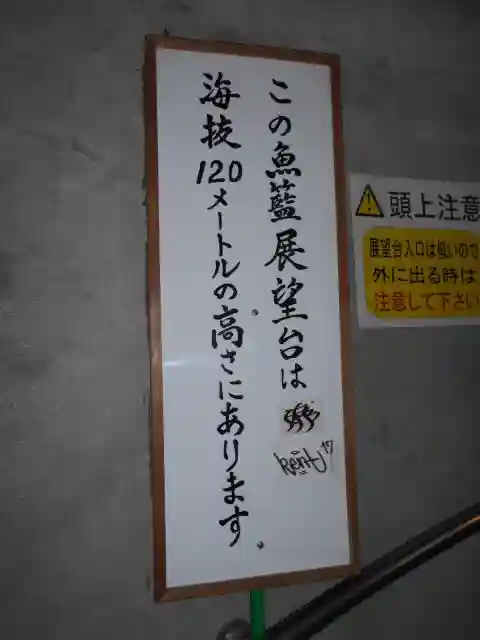 この魚籃展望台は
海抜120メートルの高さにあります。
kent 17
頭上注意
展望台入口は低いので
外に出る時は
注意して下さい